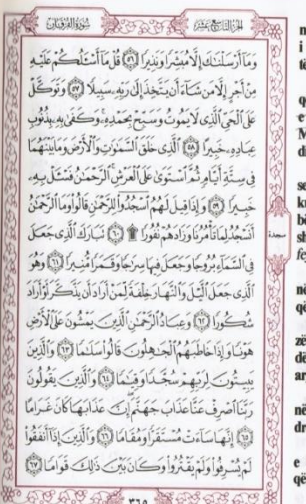 سُورَةُ الفُرْقَان
الجُزْءُ التَّاسِعَ عَشَرَ
وَمَا أَرْسَلْنَاكَ إِلَّا مُبَشِّرًا وَنَذِيرًا ﴿٥٦﴾ قُلْ مَا أَسْـَٔلُكُمْ عَلَيْهِ
مِنْ أَجْرٍ إِلَّا مَن شَآءَ أَن يَتَّخِذَ إِلَىٰ رَبِّهِۦ سَبِيلًا ﴿٥٧﴾ وَتَوَكَّلْ
عَلَى ٱلْحَىِّ ٱلَّذِى لَا يَمُوتُ وَسَبِّحْ بِحَمْدِهِۦ وَكَفَىٰ بِهِۦ بِذُنُوبِ
عِبَادِهِۦ خَبِيرًا ﴿٥٨﴾ ٱلَّذِى خَلَقَ ٱلسَّمَـٰوَٰتِ وَٱلْأَرْضَ وَمَا بَيْنَهُمَا
فِى سِتَّةِ أَيَّامٍ ثُمَّ ٱسْتَوَىٰ عَلَى ٱلْعَرْشِ ٱلرَّحْمَـٰنُ فَسْـَٔلْ بِهِۦ
خَبِيرًا ﴿٥٩﴾ وَإِذَا قِيلَ لَهُمُ ٱسْجُدُوا۟ لِلرَّحْمَـٰنِ قَالُوا۟ وَمَا ٱلرَّحْمَـٰنُ
أَنَسْجُدُ لِمَا تَأْمُرُنَا وَزَادَهُمْ نُفُورًا ۩ ﴿٦٠﴾ تَبَارَكَ ٱلَّذِى جَعَلَ
سجدة
فِى ٱلسَّمَآءِ بُرُوجًا وَجَعَلَ فِيهَا سِرَٰجًا وَقَمَرًا مُّنِيرًا ﴿٦١﴾ وَهُوَ
ٱلَّذِى جَعَلَ ٱلَّيْلَ وَٱلنَّهَارَ خِلْفَةً لِّمَنْ أَرَادَ أَن يَذَّكَّرَ أَوْ أَرَادَ
شُكُورًا ﴿٦٢﴾ وَعِبَادُ ٱلرَّحْمَـٰنِ ٱلَّذِينَ يَمْشُونَ عَلَى ٱلْأَرْضِ
هَوْنًا وَإِذَا خَاطَبَهُمُ ٱلْجَـٰهِلُونَ قَالُوا۟ سَلَـٰمًا ﴿٦٣﴾ وَٱلَّذِينَ
يَبِيتُونَ لِرَبِّهِمْ سُجَّدًا وَقِيَـٰمًا ﴿٦٤﴾ وَٱلَّذِينَ يَقُولُونَ
رَبَّنَا ٱصْرِفْ عَنَّا عَذَابَ جَهَنَّمَ إِنَّ عَذَابَهَا كَانَ غَرَامًا
﴿٦٥﴾ إِنَّهَا سَآءَتْ مُسْتَقَرًّا وَمُقَامًا ﴿٦٦﴾ وَٱلَّذِينَ إِذَآ أَنفَقُوا۟
لَمْ يُسْرِفُوا۟ وَلَمْ يَقْتُرُوا۟ وَكَانَ بَيْنَ ذَٰلِكَ قَوَامًا ﴿٦٧﴾
٣٦٥